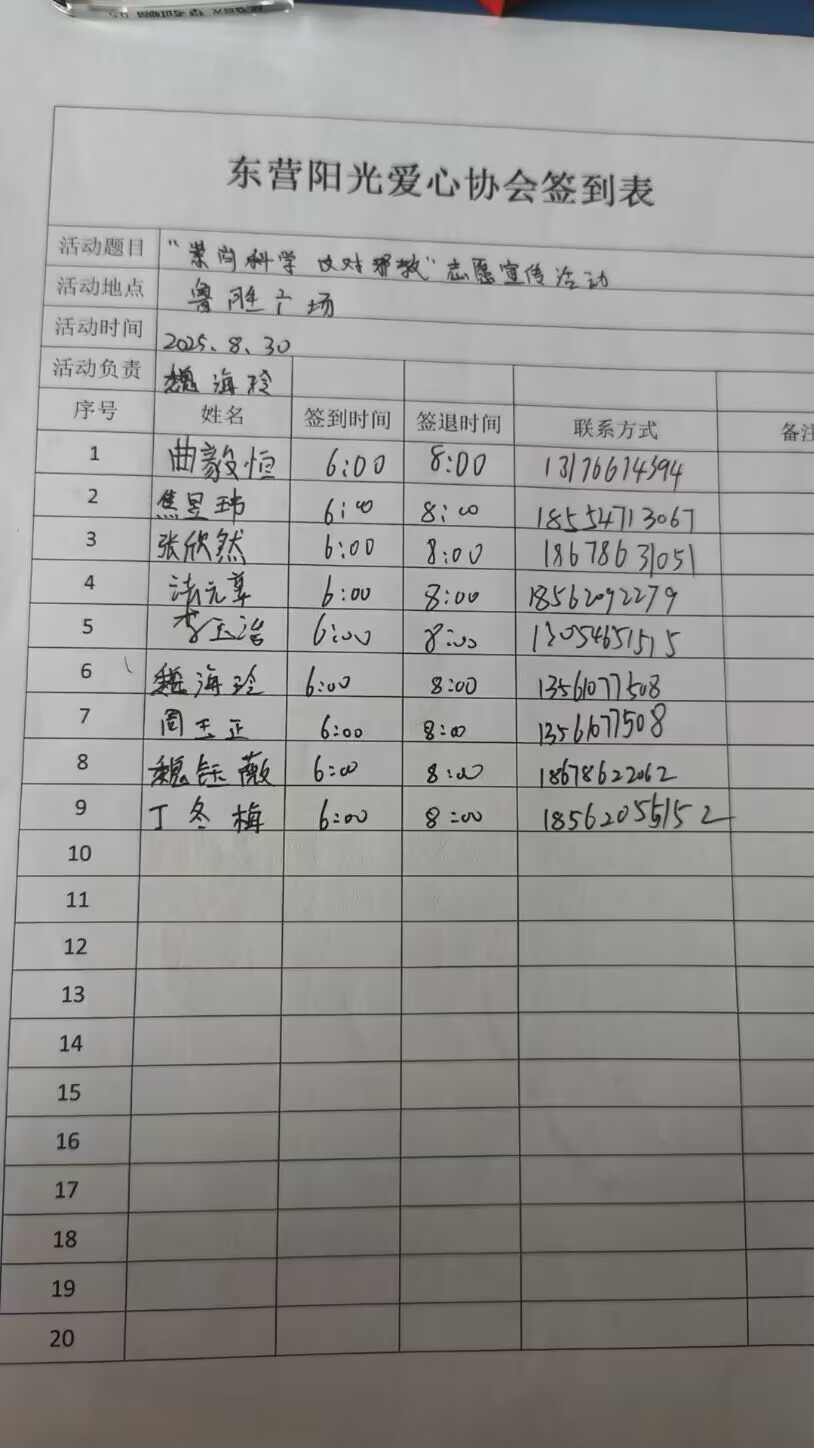 东营阳光爱心协会签到表
活动题目 “崇尚科学 反对邪教”志愿宣传活动
活动地点 鲁胜广场
活动时间 2025、8、30
活动负责 魏海玲
序号 姓名 签到时间 签退时间 联系方式 备注
1 曲毅恒 6:00 8:00 13176614394
2 焦昱玮 6:00 8:00 18554713067
3 张欣然 6:00 8:00 18678631051
4 6:00 8:00 18562092279
5 李玉浩 6:00 8:00 13054651515
6 魏海玲 6:00 8:00 13561077508
7 周玉正 6:00 8:00 13561077508
8 魏钰薇 6:00 8:00 18678622062
9 丁冬梅 6:00 8:00 18562055152
10
11
12
13
14
15
16
17
18
19
20